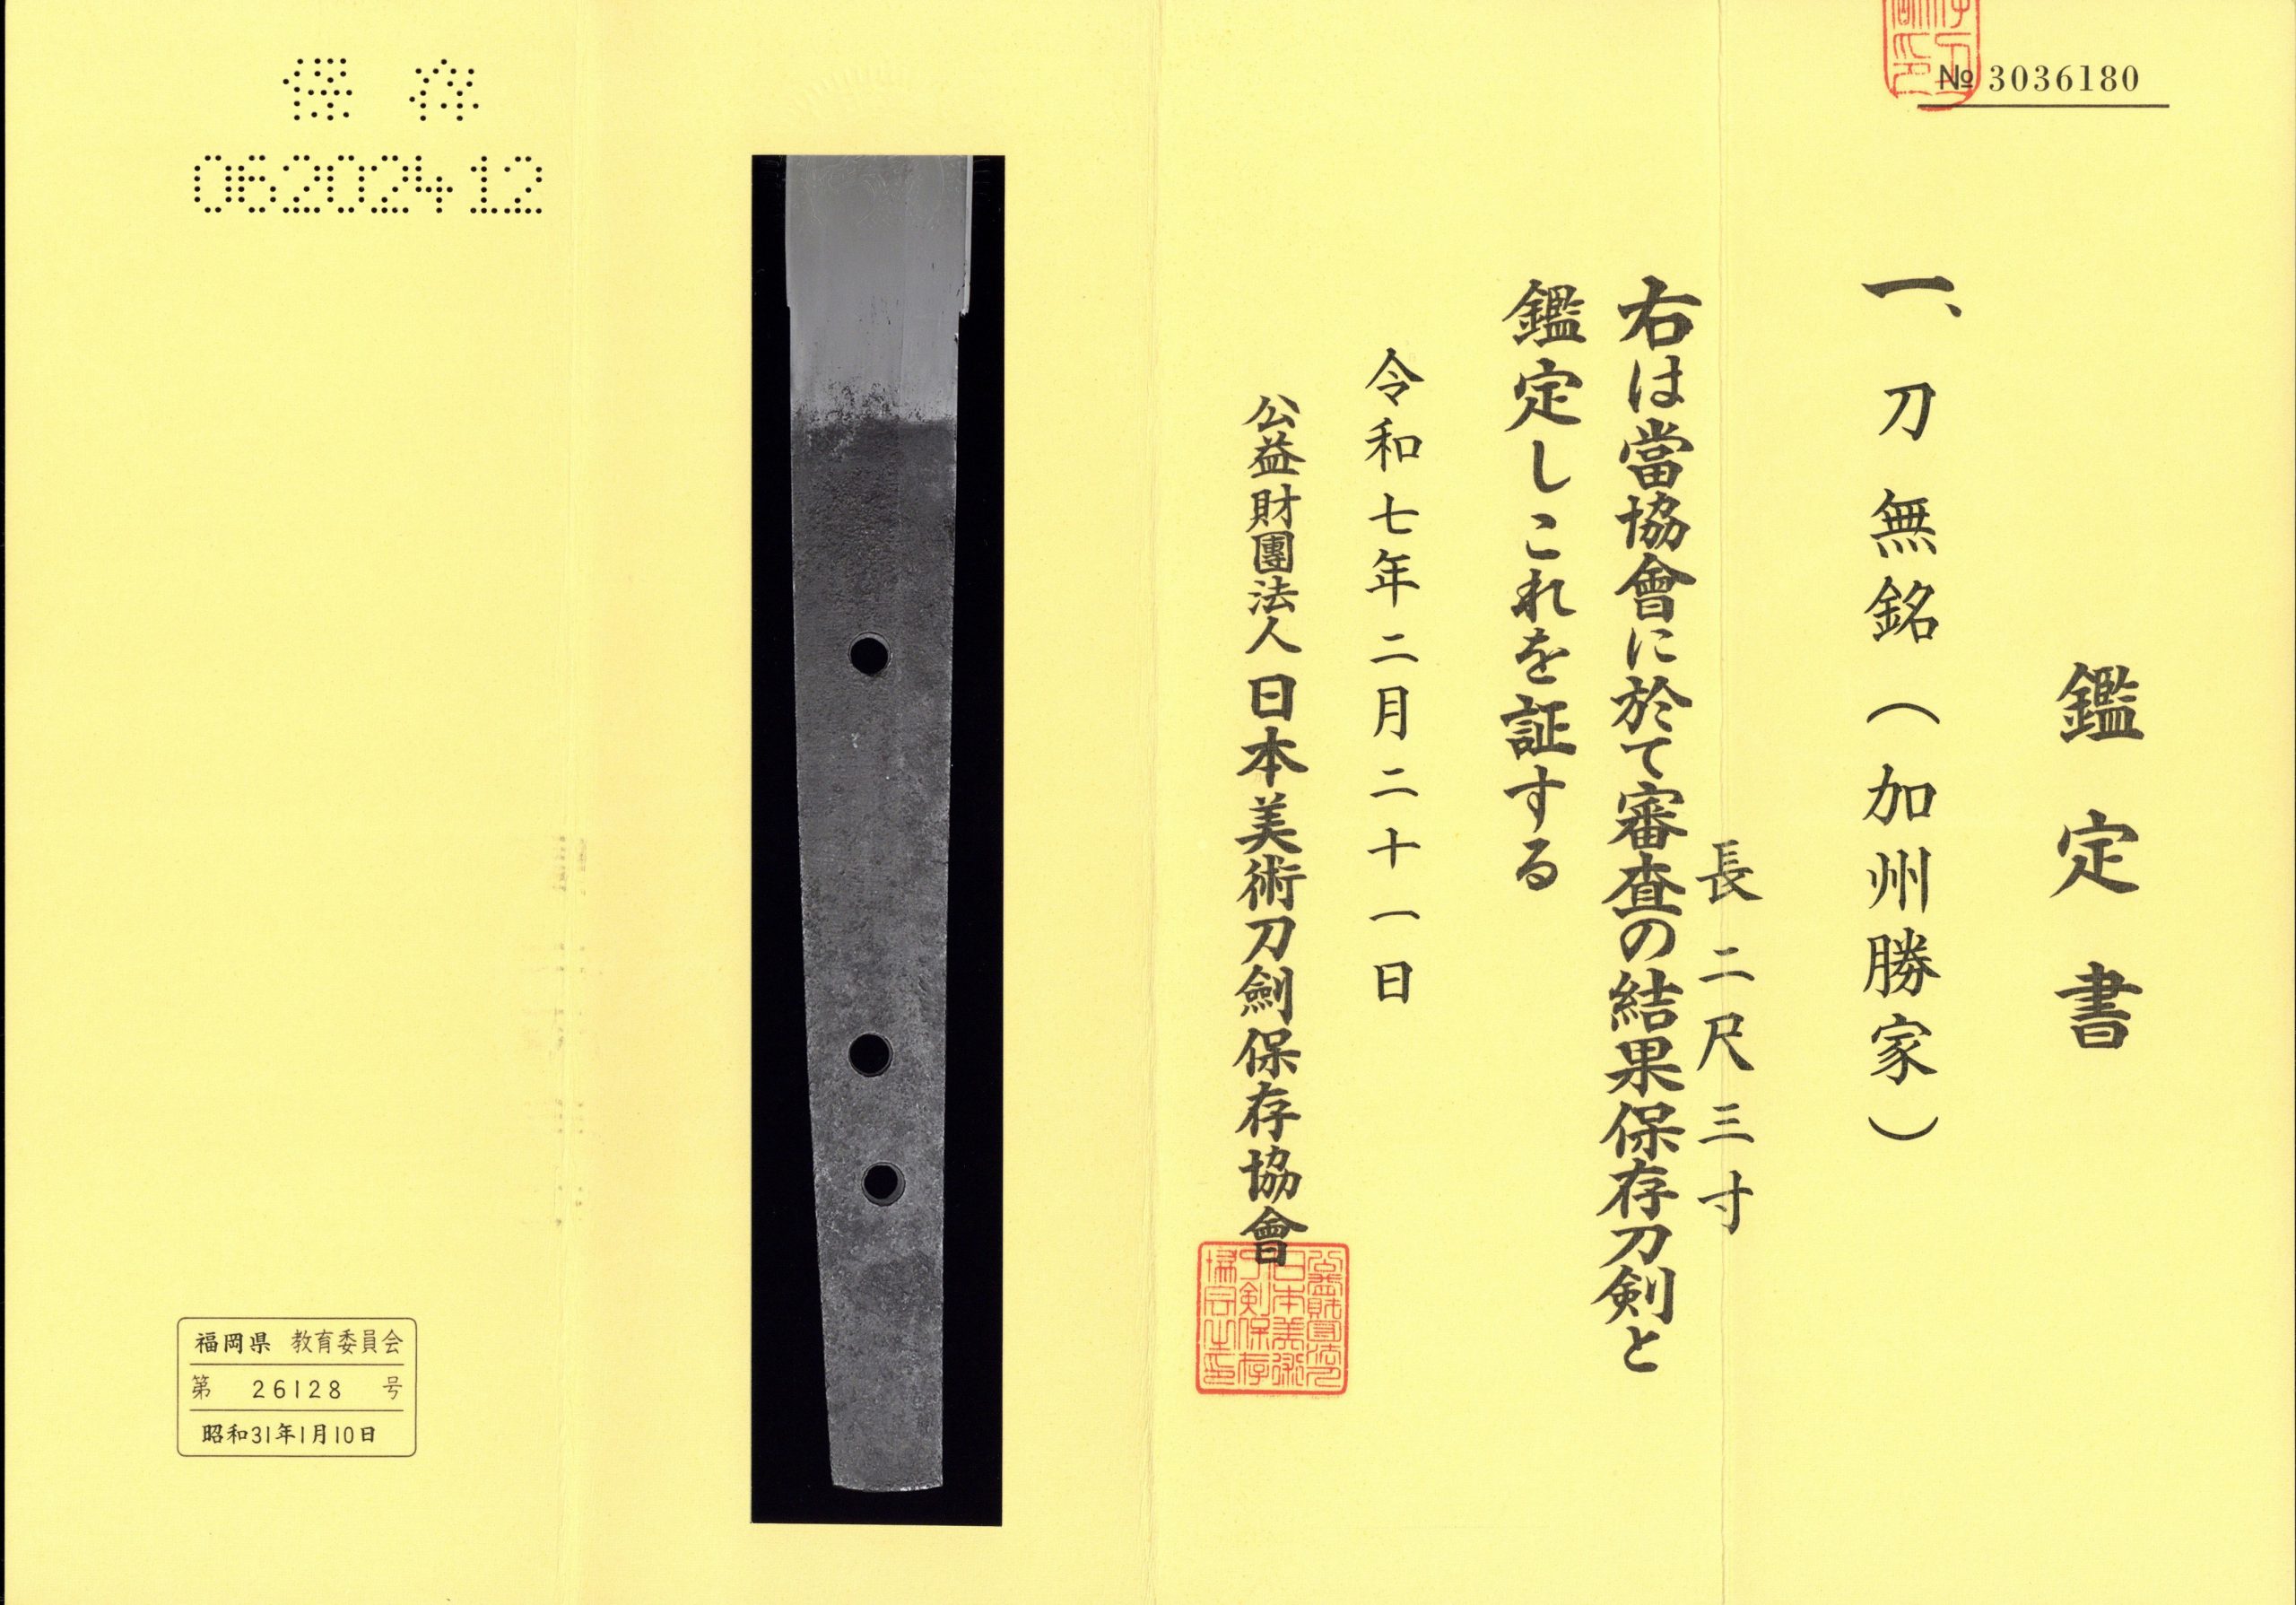 № 3036180
鑑定書
一、刀 無銘（加州勝家）
長二尺三寸
右は當協會に於て審査の結果保存刀剣と
鑑定しこれを証する
令和七年二月二十一日
公益財團法人 日本美術刀劍保存協會
保存
06202412
福岡県 教育委員会
第 26128 号
昭和31年1月10日